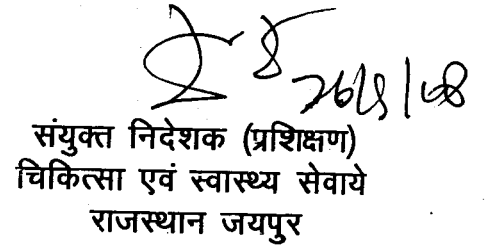 संयुक्त निदेशक (प्रशिक्षण)
चिकित्सा एवं स्वास्थ्य सेवाये
राजस्थान जयपुर